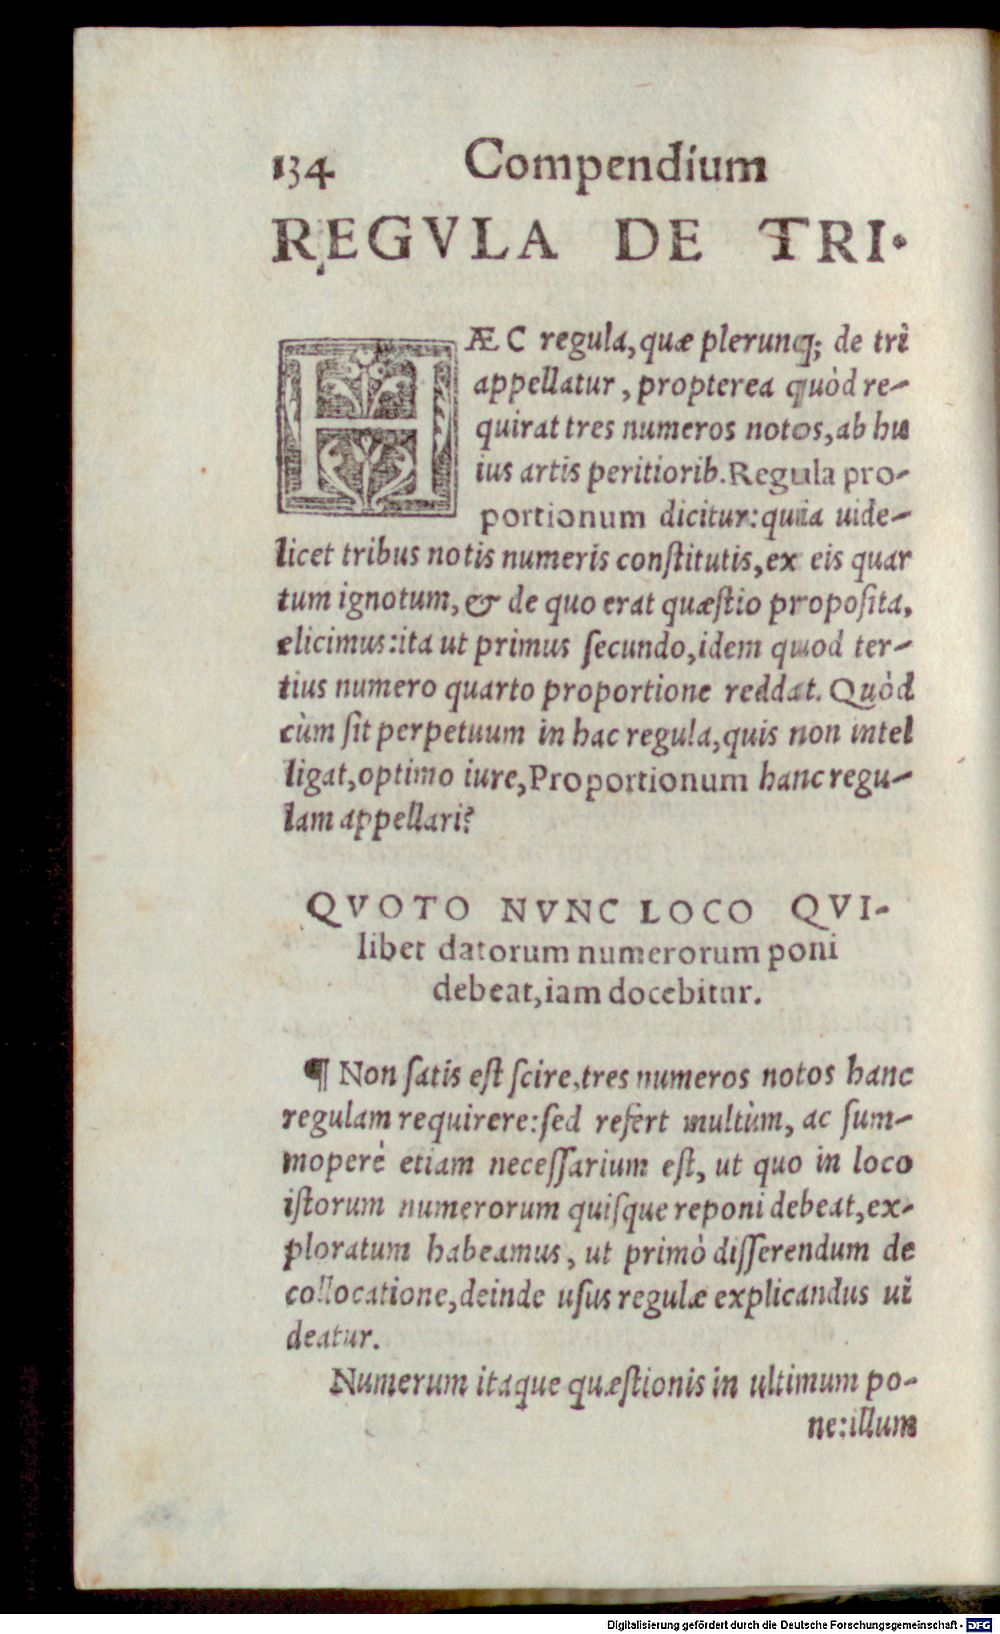 134 Compendium
REGVLA DE TRI.
HÆC regula, quæ plerunq; de tri
appellatur, propterea quòd re-
quirat tres numeros notos, ab hu
ius artis peritiorib. Regula pro-
portionum dicitur: quia uide-
licet tribus notis numeris conſtitutis, ex eis quar
tum ignotum, & de quo erat quæſtio propoſita,
elicimus: ita ut primus ſecundo, idem quod ter-
tius numero quarto proportione reddat. Quòd
cùm ſit perpetuum in hac regula, quis non intel
ligat, optimo iure, Proportionum hanc regu-
lam appellari?
QVOTO NVNC LOCO QVI-
libet datorum numerorum poni
debeat, iam docebitur.
¶ Non ſatis eſt ſcire, tres numeros notos hanc
regulam requirere: ſed refert multùm, ac ſum-
moperè etiam neceſſarium eſt, ut quo in loco
iſtorum numerorum quiſque reponi debeat, ex-
ploratum habeamus, ut primò diſſerendum de
collocatione, deinde uſus regulæ explicandus ui
deatur.
Numerum itaque quæſtionis in ultimum po-
ne: illum
Digitalisierung gefördert durch die Deutsche Forschungsgemeinschaft - DFG